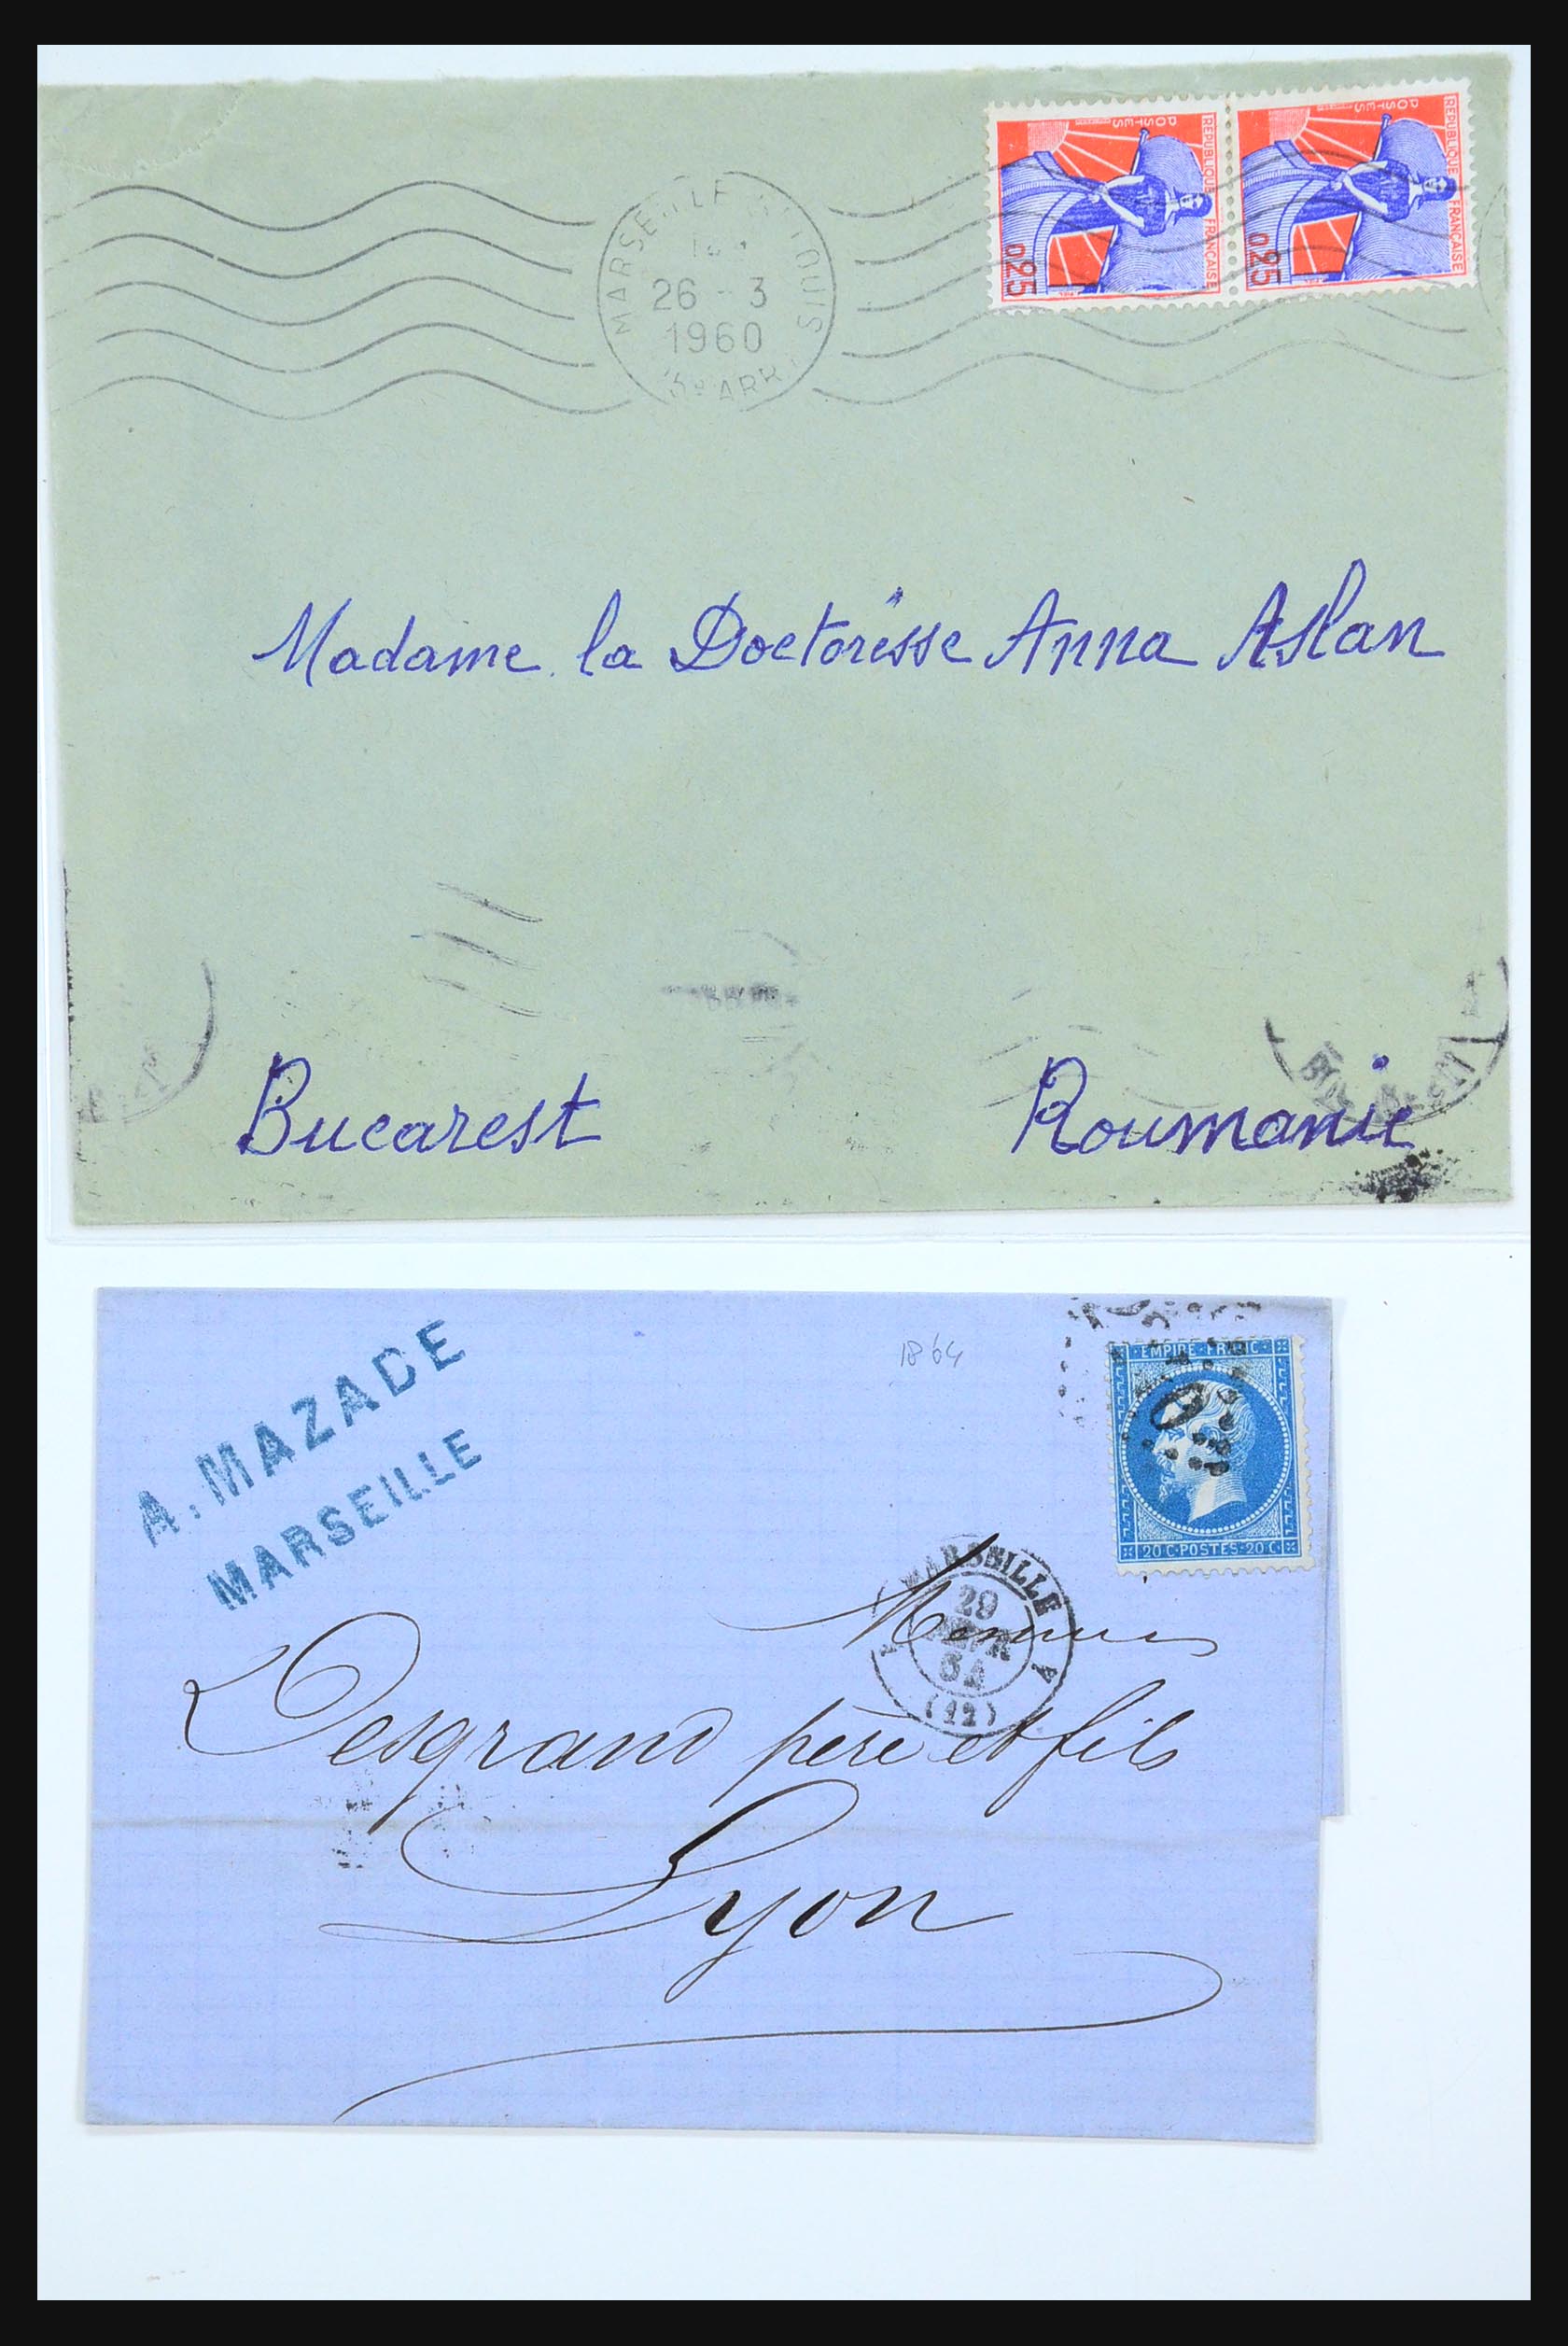 REPUBLIQUE FRANÇAISE
POSTES
0,25
REPUBLIQUE FRANÇAISE
POSTES
0,25
MARSEILLE
26 - 3
1960
ARRT
Madame la Doctoresse Anna Aslan
Bucarest Roumanie
1864
EMPIRE FRANC
20 C·POSTES·20 C
A. MAZADE
MARSEILLE
MARSEILLE
29
64
(12)
Messieurs
Desgrand père et fils
Lyon